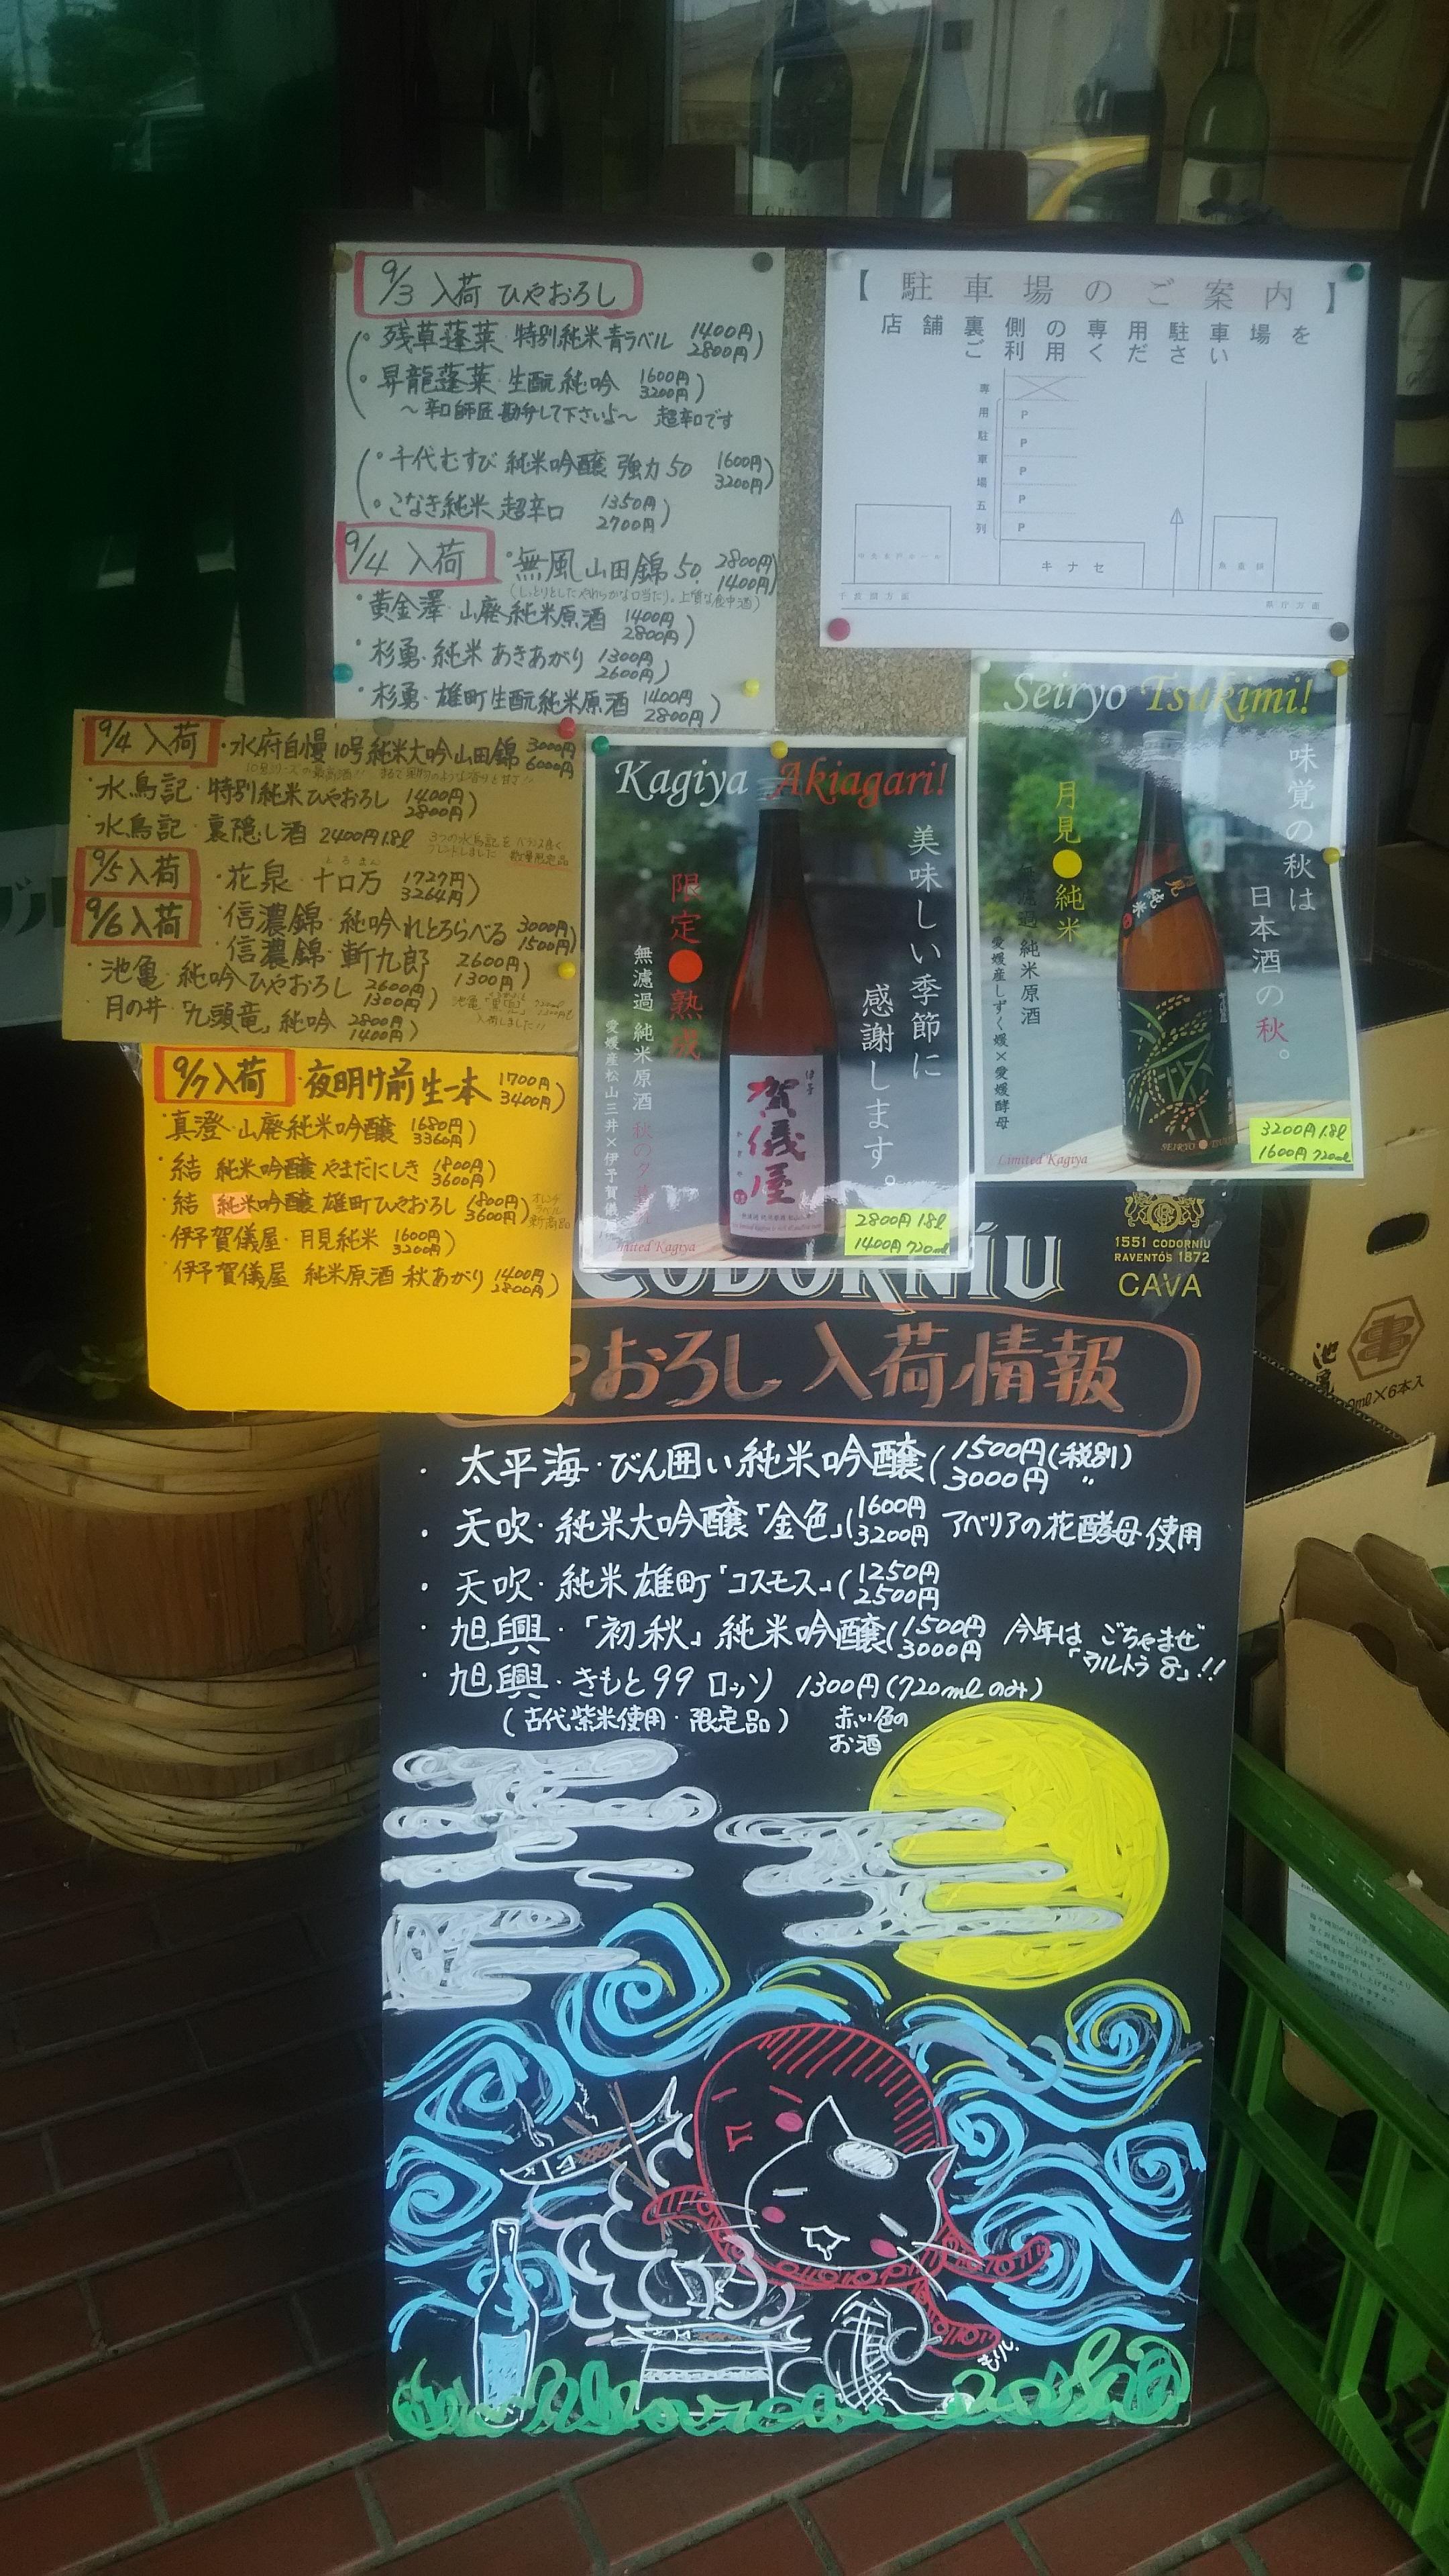 9/3 入荷 ひやおろし
・残草蓬莱 特別純米青ラベル 1400円 2800円
・昇龍蓬莱 生酛純吟 1600円 3200円
〜辛口師匠 勘弁して下さいよ〜 超辛口です
・千代むすび 純米吟醸 強力50 1600円 3200円
・こなき純米 超辛口 1350円 2700円
9/4 入荷 ・無風 山田錦50 2800円 1400円
(しっとりとしたやわらかな口当たり。上質な食中酒)
・黄金澤 山廃純米原酒 1400円 2800円
・杉勇・純米 あきあがり 1300円 2600円
・杉勇・雄町生酛純米原酒 1400円 2800円
【駐車場のご案内】
店舗裏側の専用駐車場を
ご利用ください
専用駐車場五列
P
P
P
P
P
キナセ
県庁方面
9/4 入荷 ・水府自慢10号純米大吟山田錦 3000円 6000円
・水鳥記・特別純米ひやおろし 1400円 2800円
・水鳥記・裏隠し酒 2400円1.8l
3つの水鳥記をバランス良くブレンドしました 数量限定品
9/5入荷 ・花泉・十ロ万 1727円 3264円
9/6入荷 ・信濃錦・純吟れとろらべる 3000円 1500円
・信濃錦・斬九郎 2600円 1300円
・池亀・純吟ひやおろし 2600円 1300円
・月の井・「九頭竜」純吟 2800円 1400円
9/7入荷 ・夜明け前生一本 1700円 3400円
・真澄・山廃純米吟醸 1680円 3360円
・結 純米吟醸 やまだにしき 1800円 3600円
・結 純米吟醸 雄町ひやおろし 1800円 3600円
オレンジラベル新商品
・伊予賀儀屋・月見純米 1600円 3200円
・伊予賀儀屋 純米原酒 秋あがり 1400円 2800円
Kagiya Akiagari!
美味しい季節に
感謝します。
限定●熟成
無濾過 純米原酒
愛媛産松山三井×伊予賀儀屋
伊予
賀儀屋
Limited Kagiya
2800円 1.8l
1400円 720ml
Seiryo Tsukimi!
味覚の秋は
日本酒の秋。
月見●純米
無濾過 純米原酒
愛媛産しずく媛×愛媛酵母
Limited Kagiya
3200円 1.8l
1600円 720ml
CODORNÍU
1551 CODORNÍU
RAVENTÓS 1872
CAVA
やおろし入荷情報
・太平海・びん囲い純米吟醸(1500円(税別) 3000円 〃
・天吹・純米大吟醸「金色」(1600円 3200円 アベリアの花酵母使用
・天吹・純米雄町「コスモス」(1250円 2500円
・旭興・「初秋」純米吟醸(1500円 3000円 今年は ごちゃまぜ「ウルトラ8」!!
・旭興・きもと99 ロッソ 1300円(720mlのみ)
(古代紫米使用・限定品) 赤い色のお酒
池亀
ml×6本入